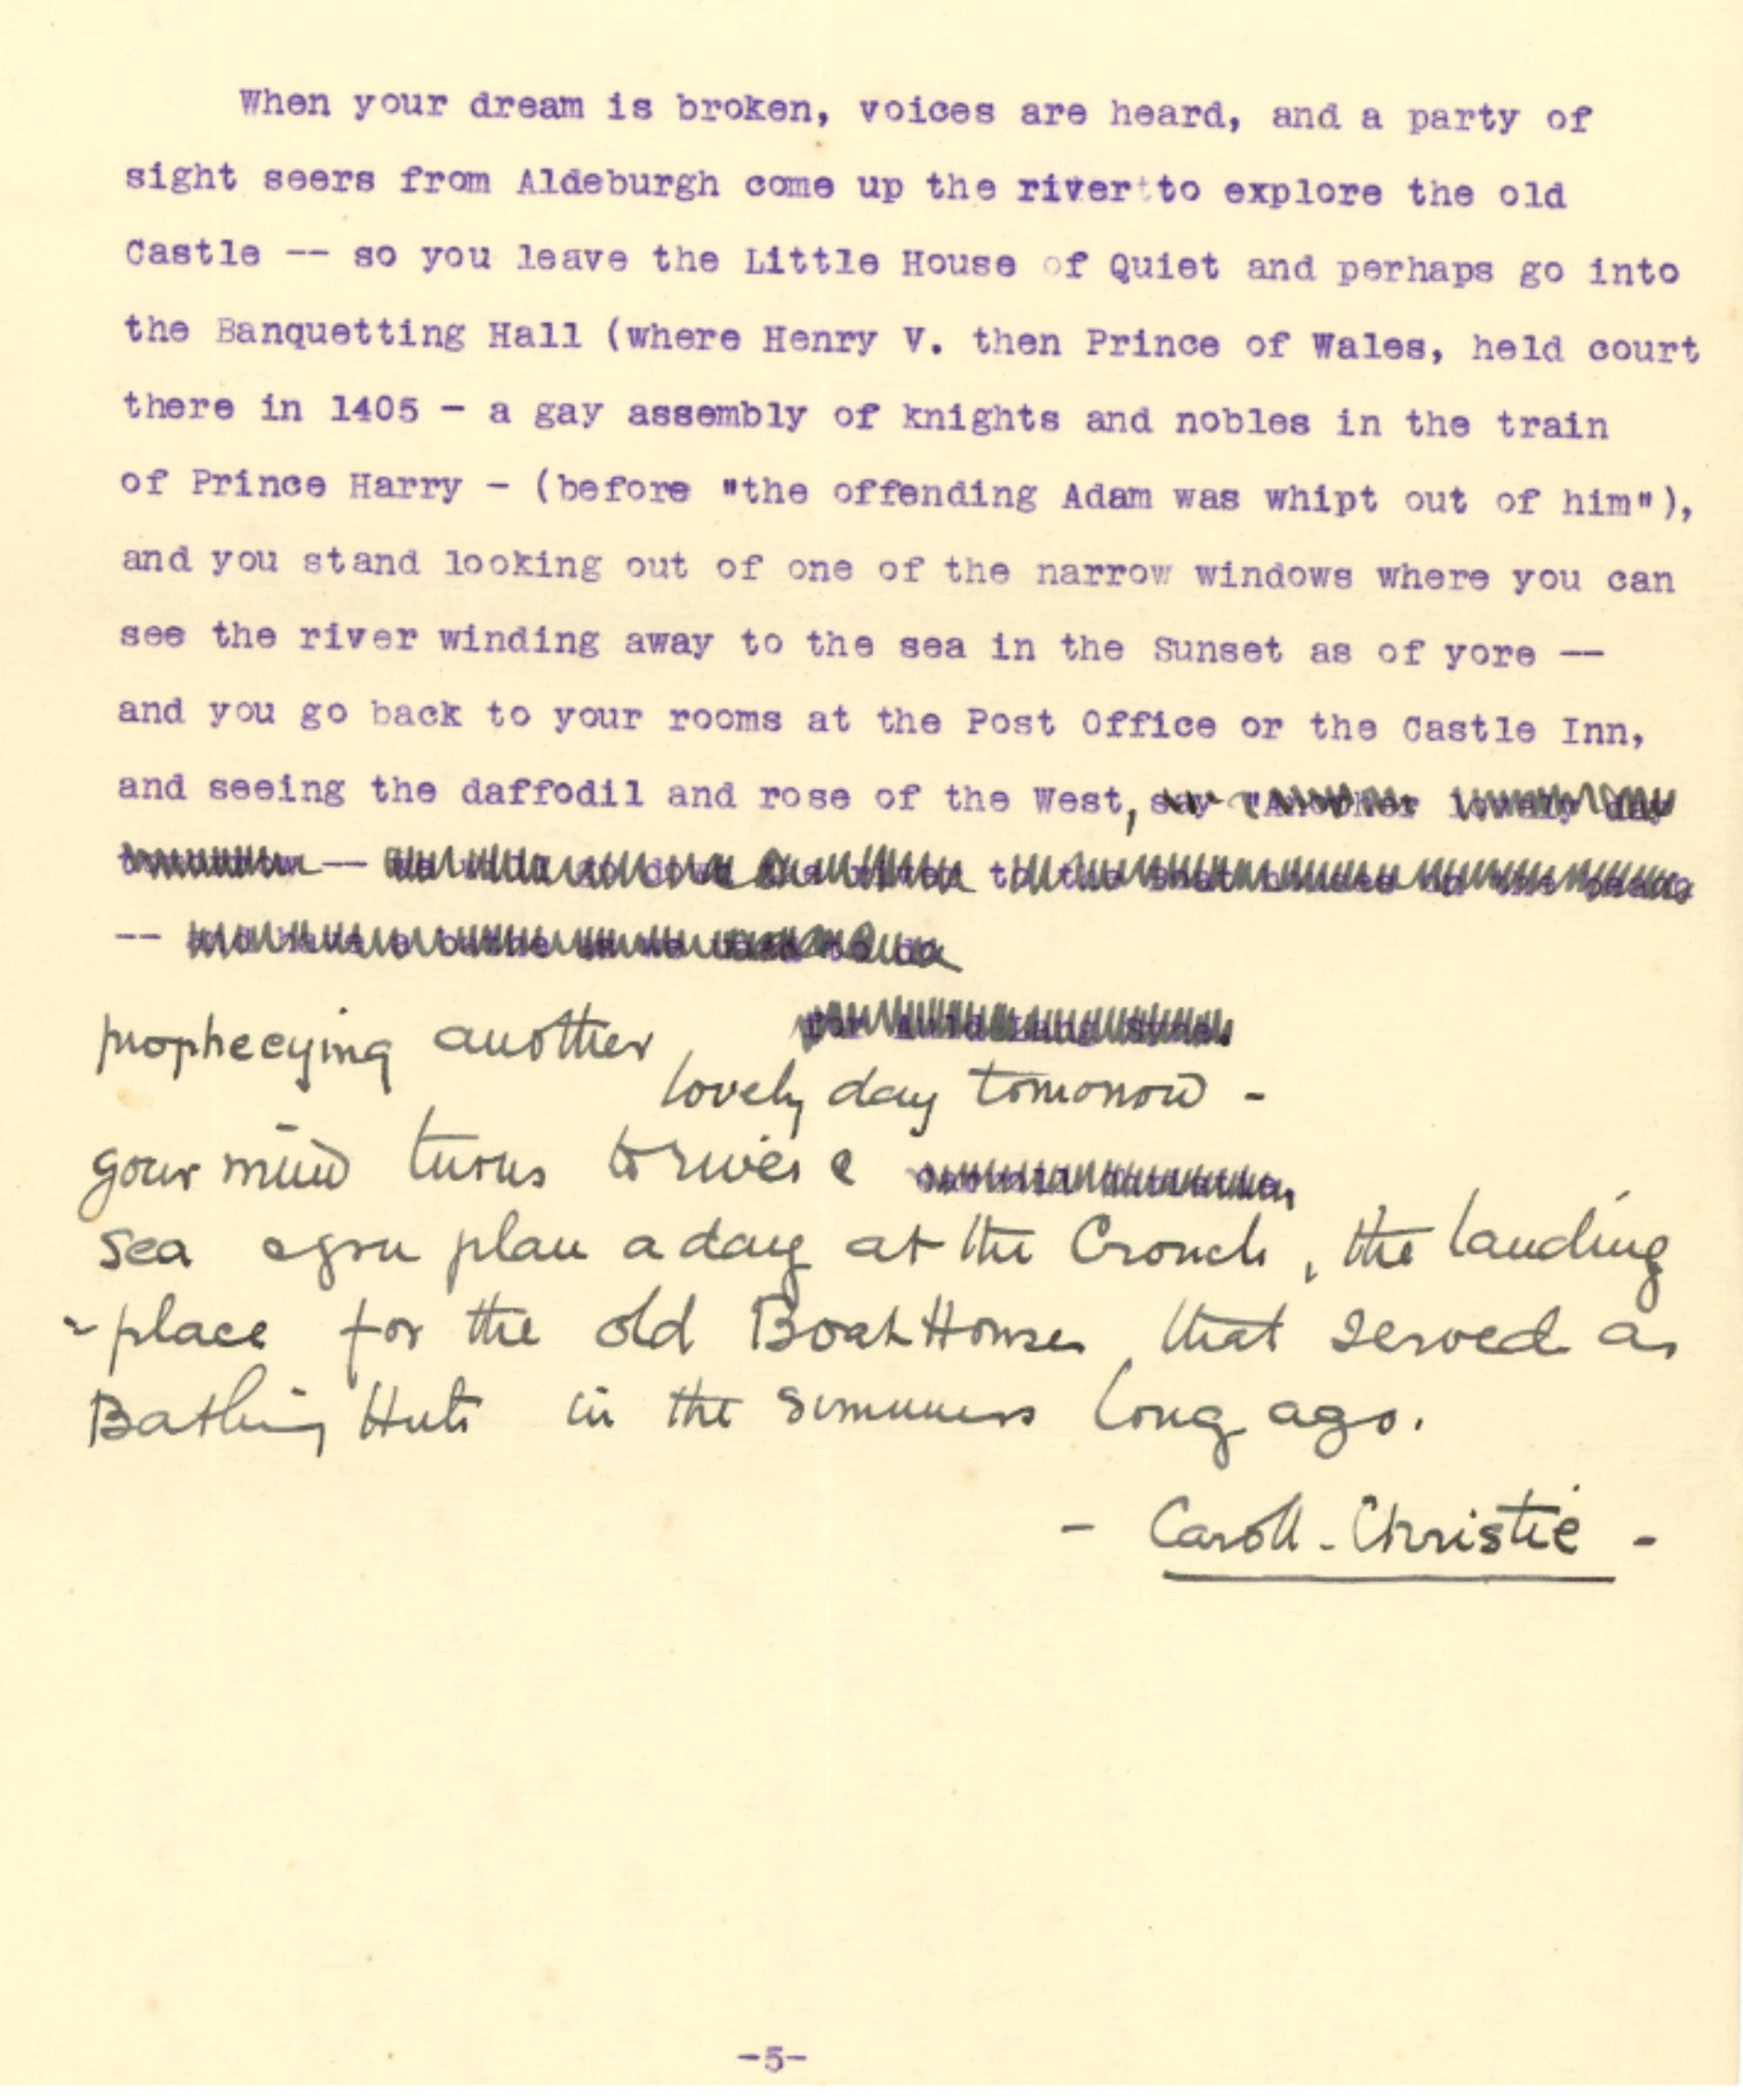 When your dream is broken, voices are heard, and a party of
sight seers from Aldeburgh come up the river to explore the old
Castle -- so you leave the Little House of Quiet and perhaps go into
the Banquetting Hall (where Henry V. then Prince of Wales, held court
there in 1405 - a gay assembly of knights and nobles in the train
of Prince Harry - (before "the offending Adam was whipt out of him"),
and you stand looking out of one of the narrow windows where you can
see the river winding away to the sea in the Sunset as of yore --
and you go back to your rooms at the Post Office or the Castle Inn,
and seeing the daffodil and rose of the West, say "Another lovely day
tomorrow -- we will go down the river to the
-- and have a bathe as we used to do
for Auld Lang Syne.
propheeying another
lovely day tomorrow -
your mind turns to river &
sea & you plan a day at the Crouch, the landing
-place for the old Boat Houses that served as
Bathing Huts in the summers long ago.
- Caroll - Christie -
-5-